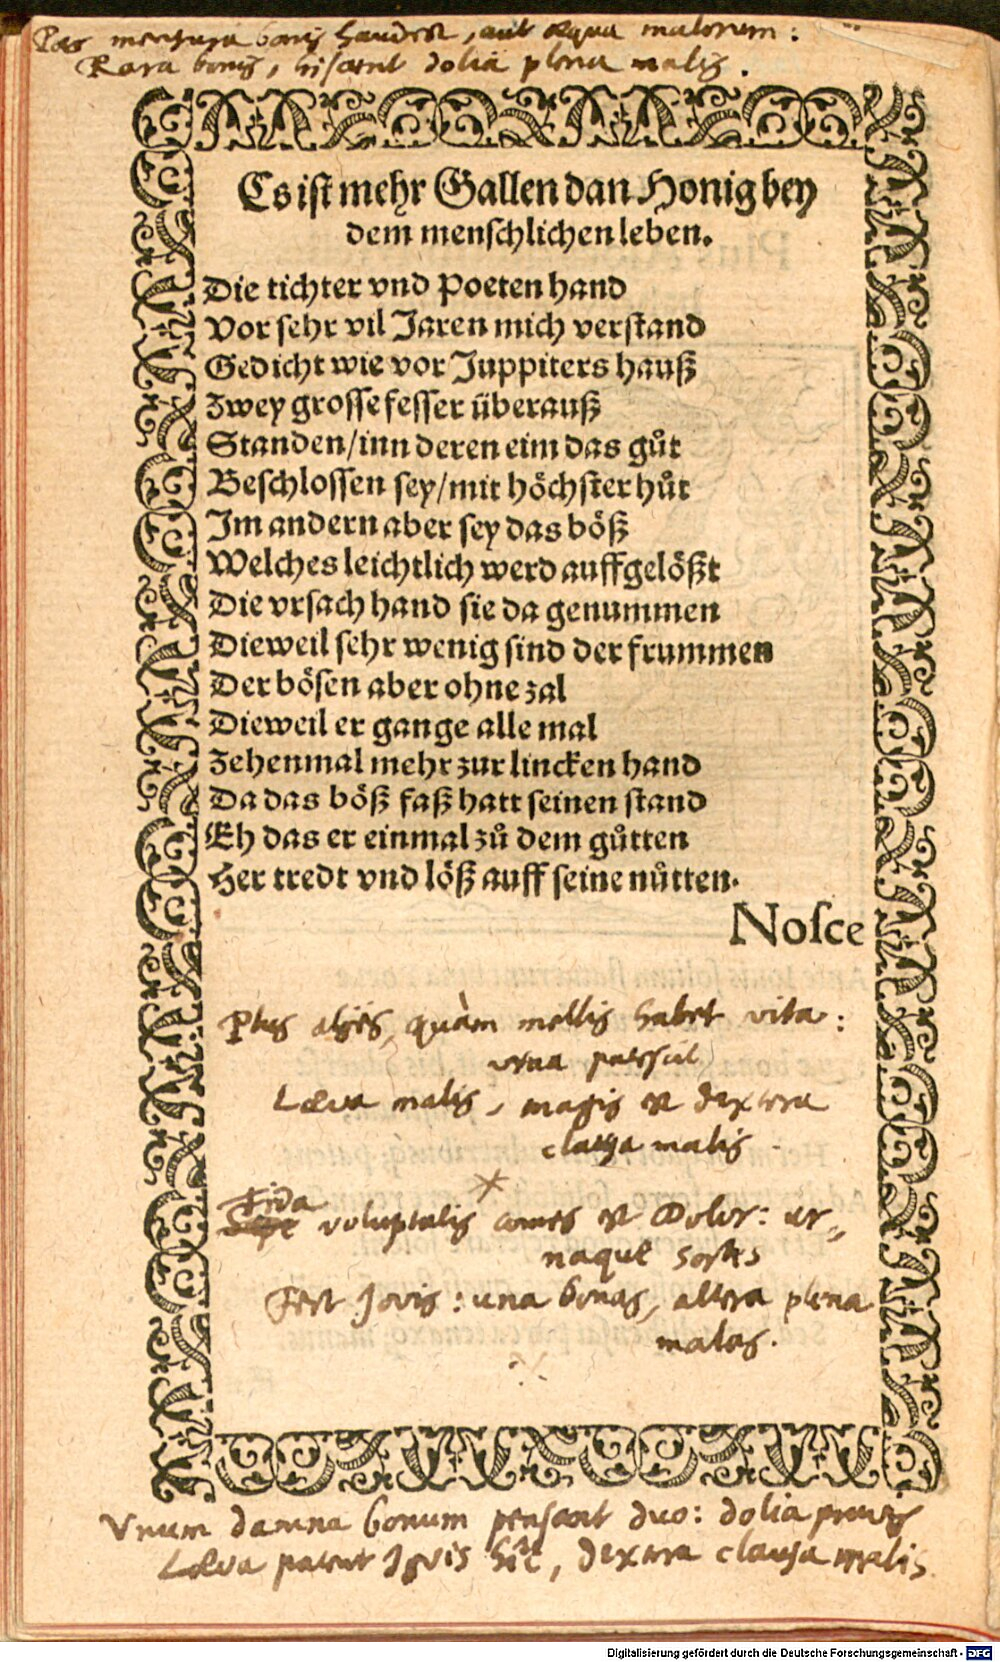 Par mensura bonis haud est, aut aequa malorum:
Rara bonis, hiscent dolia plena malis.
Es ist mehr Gallen dan Honig bey
dem menschlichen leben.
Die tichter vnd Poeten hand
Vor sehr vil Jaren mich verstand
Gedicht wie vor Juppiters hauß
Zwey grosse fesser überauß
Standen/inn deren eim das gůt
Beschlossen sey/mit höchster hůt
Im andern aber sey das böß
Welches leichtlich werd auffgelößt
Die vrsach hand sie da genummen
Dieweil sehr wenig sind der frummen
Der bösen aber ohne zal
Dieweil er gange alle mal
Zehenmal mehr zur lincken hand
Da das böß faß hatt seinen stand
Eh das er einmal zů dem gůtten
Her tredt vnd löß auff seine nůtten.
Nosce
Plus quàm mellis habet vita:
vrna patescit
Laeva malis, magis est dextera
clausa malis
Fida voluptatis comes est Dolor: ur„
naque sortes
Fert Jovis: una bonas, altera plena
malas.
Vnum damna bonum pensant duo: dolia
Laeva patent Jovis hîc, dextera clausa malis
Digitalisierung gefördert durch die Deutsche Forschungsgemeinschaft - DFG